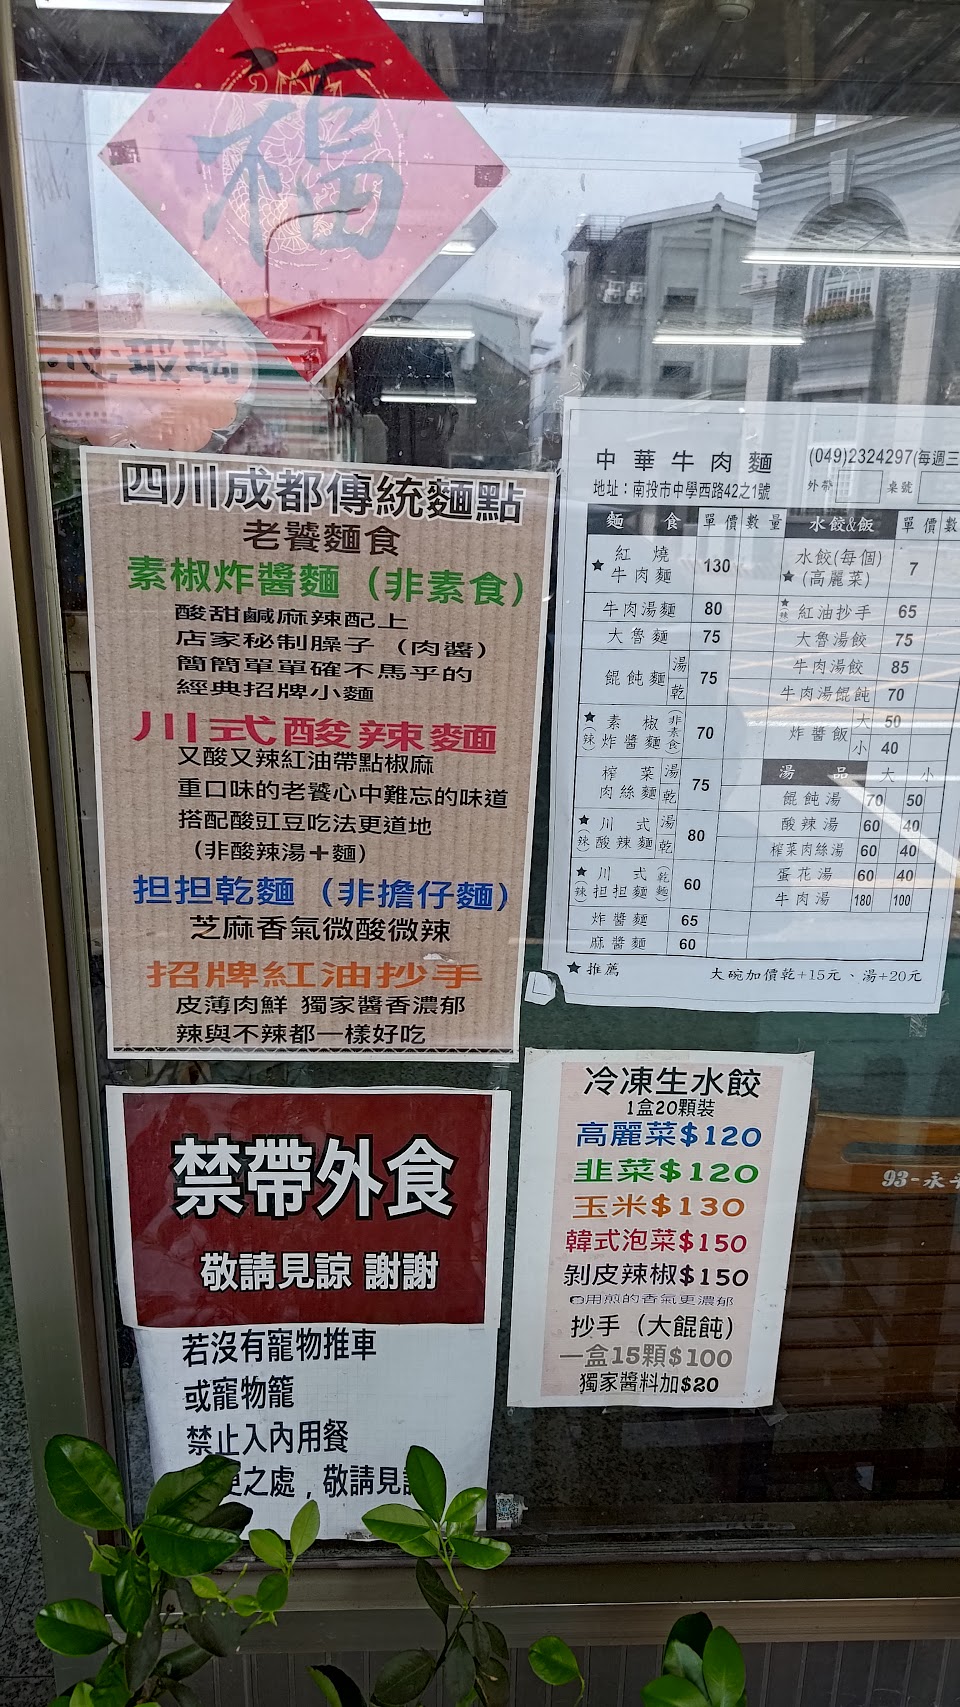 福
四川成都傳統麵點
老饕麵食
素椒炸醬麵（非素食）
酸甜鹹麻辣配上
店家秘制臊子（肉醬）
簡簡單單確不馬乎的
經典招牌小麵
川式酸辣麵
又酸又辣紅油帶點椒麻
重口味的老饕心中難忘的味道
搭配酸豇豆吃法更道地
（非酸辣湯＋麵）
担担乾麵（非擔仔麵）
芝麻香氣微酸微辣
招牌紅油抄手
皮薄肉鮮 獨家醬香濃郁
辣與不辣都一樣好吃
中華牛肉麵 (049)2324297(每週三
地址：南投市中學西路42之1號 外帶 桌號
麵食 單價 數量 水餃&飯 單價 數
★紅燒牛肉麵 130 水餃(每個)★(高麗菜) 7
牛肉湯麵 80 ★辣 紅油抄手 65
大魯麵 75 大魯湯餃 75
餛飩麵 湯 乾 75 牛肉湯餃 85
牛肉湯餛飩 70
★(辣) 素椒炸醬麵(非素食) 70 炸醬飯 大 50
小 40
榨菜肉絲麵 湯 乾 75 湯品 大 小
餛飩湯 70 50
★(辣) 川式酸辣麵 湯 乾 80 酸辣湯 60 40
榨菜肉絲湯 60 40
★(辣) 川式担担麵(乾麵) 60 蛋花湯 60 40
牛肉湯 180 100
炸醬麵 65
麻醬麵 60
★推薦 大碗加價乾+15元、湯+20元
冷凍生水餃
1盒20顆裝
高麗菜$120
韭菜$120
玉米$130
韓式泡菜$150
剝皮辣椒$150
用煎的香氣更濃郁
抄手（大餛飩）
一盒15顆$100
獨家醬料加$20
禁帶外食
敬請見諒 謝謝
若沒有寵物推車
或寵物籠
禁止入內用餐
之處，敬請見
93-永